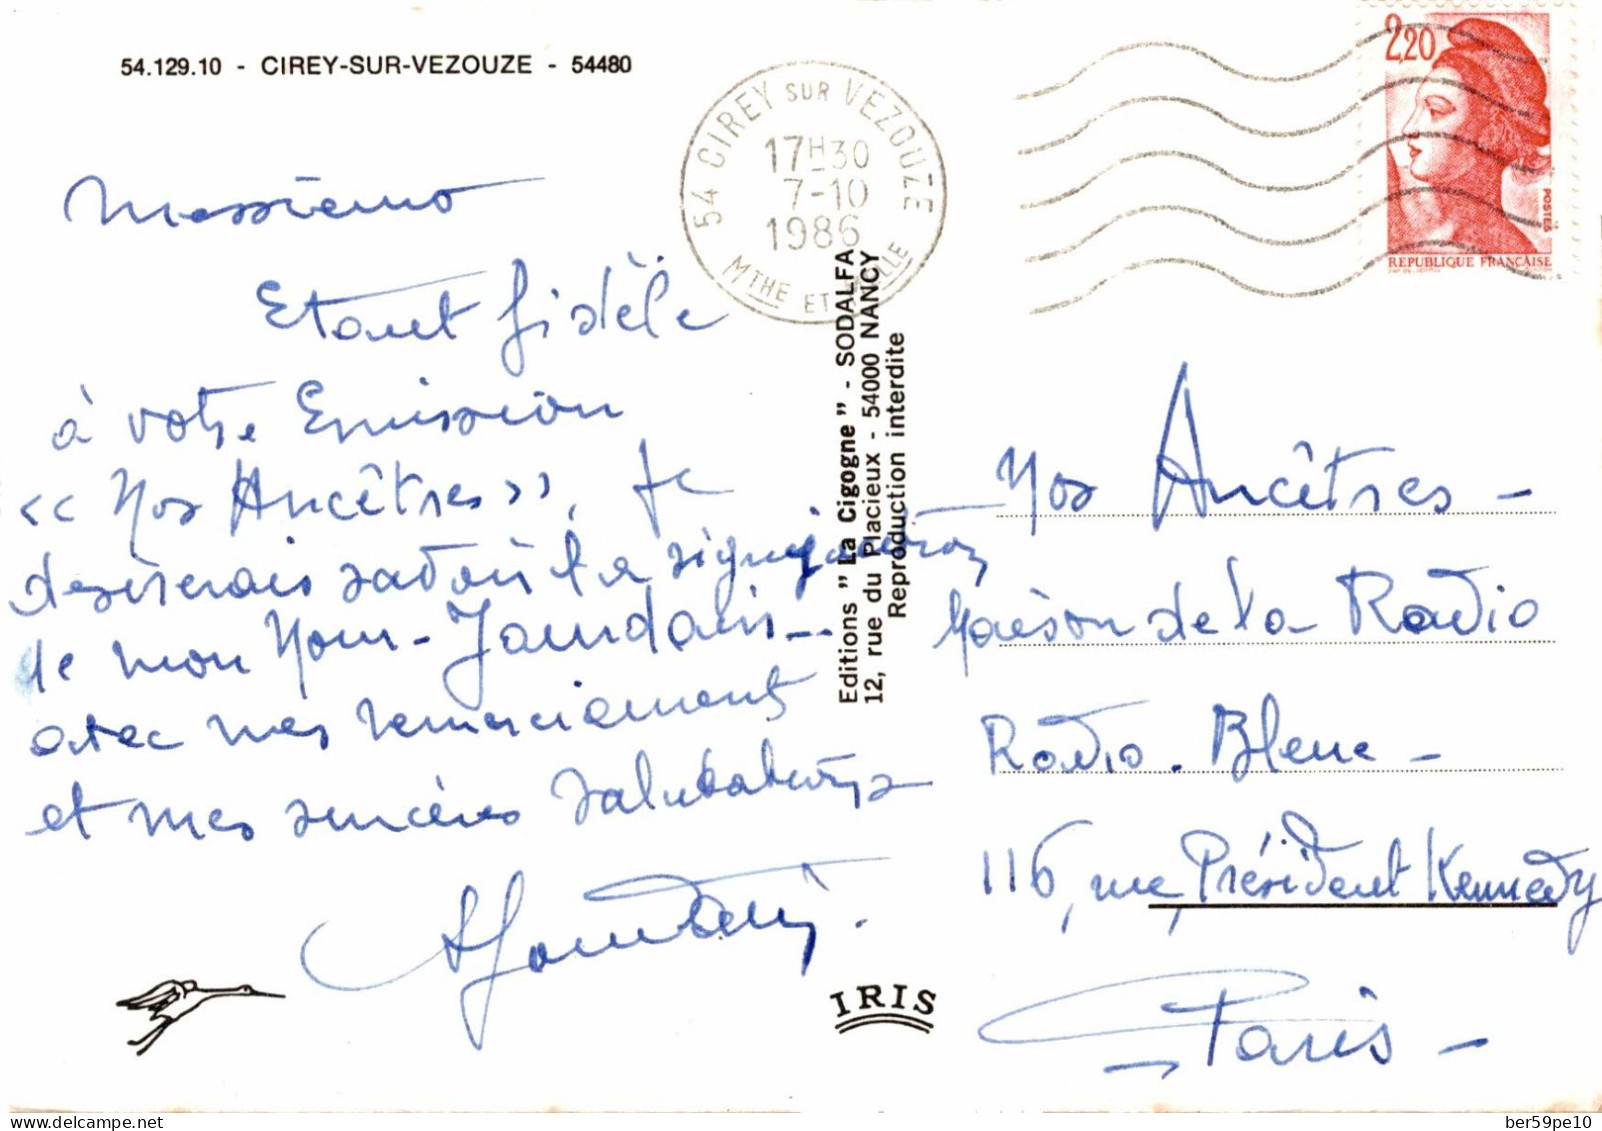 54.129.10 - CIREY-SUR-VEZOUZE - 54480
54 CIREY SUR VEZOUZE
17H30
7-10
1986
MTHE ET
2,20
POSTES
REPUBLIQUE FRANÇAISE
Etant fidèle
à votre Emission
<< Nos Ancêtres >>, je
desirerais savoir la signification
de mon Nom - Jaudain -
avec mes remerciements
et mes sincères salutations
Editions "La Cigogne" - SODALFA
12, rue du Placieux - 54000 NANCY
Reproduction interdite
Nos Ancêtres -
Maison de la Radio
Radio. Bleue -
116, rue Président Kennedy
- Paris -
IRIS
ber59pe10